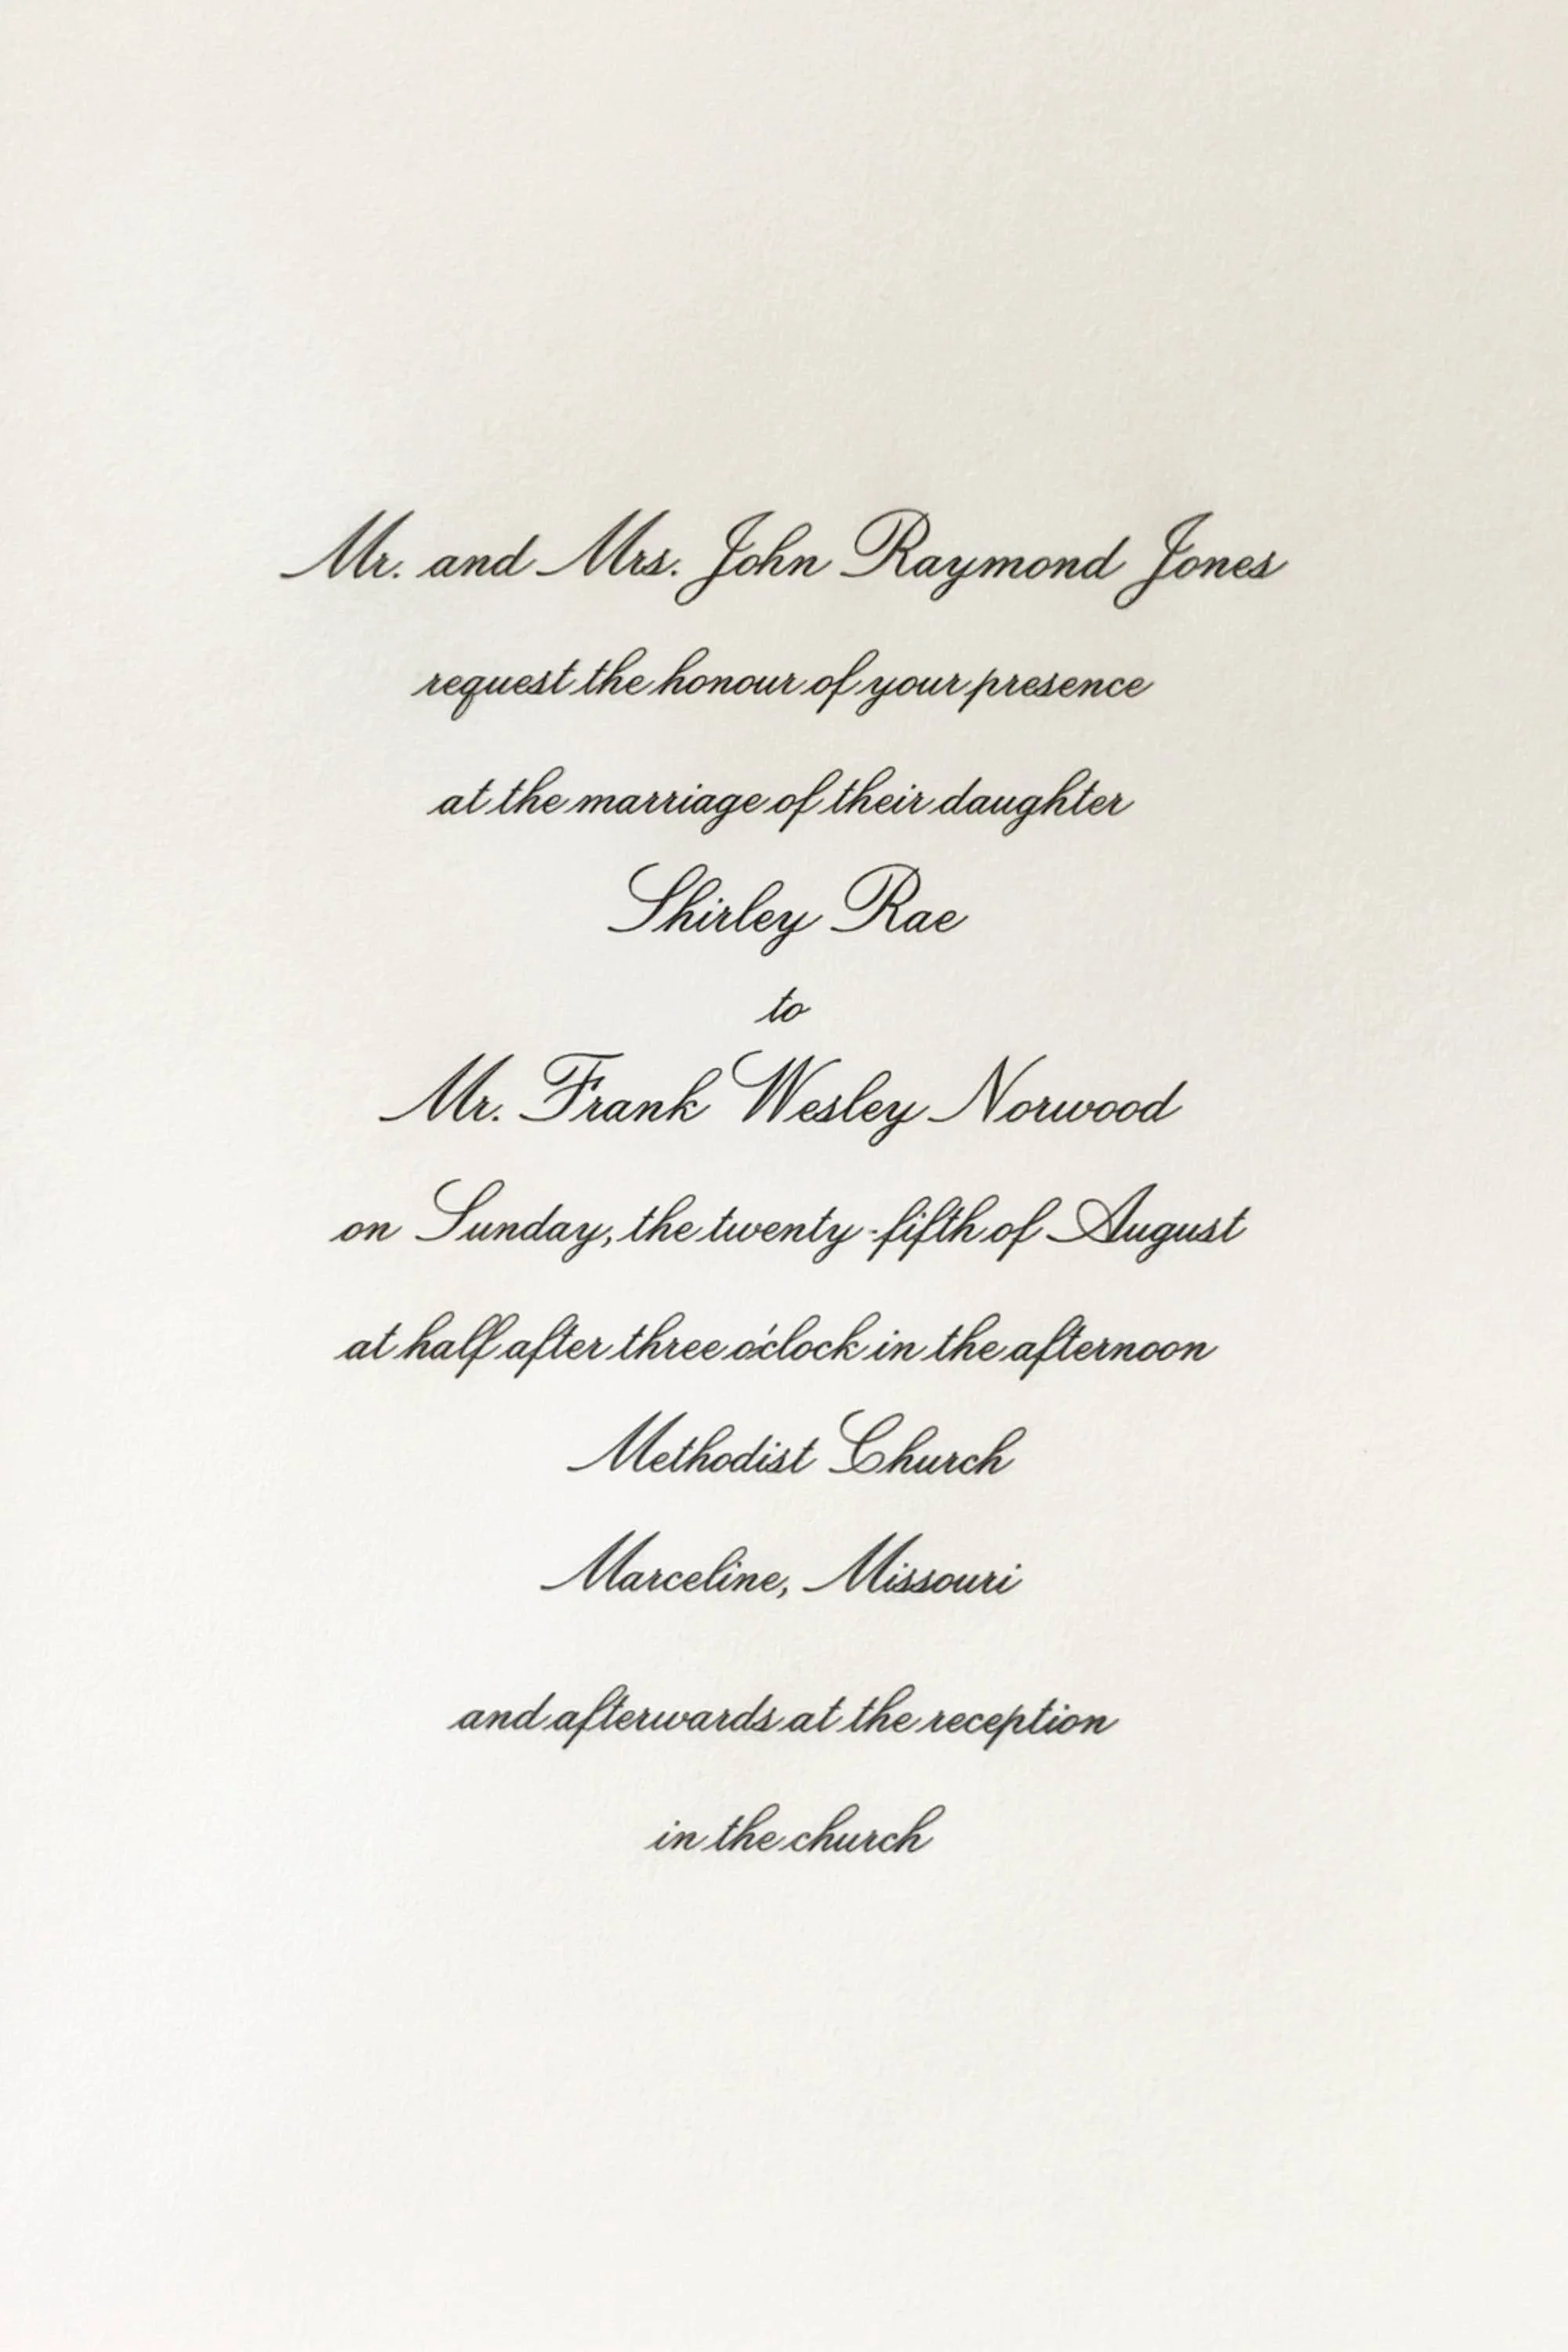 Mr. and Mrs. John Raymond Jones
request the honour of your presence
at the marriage of their daughter
Shirley Rae
to
Mr. Frank Wesley Norwood
on Sunday, the twenty-fifth of August
at half after three o'clock in the afternoon
Methodist Church
Marceline, Missouri
and afterwards at the reception
in the church